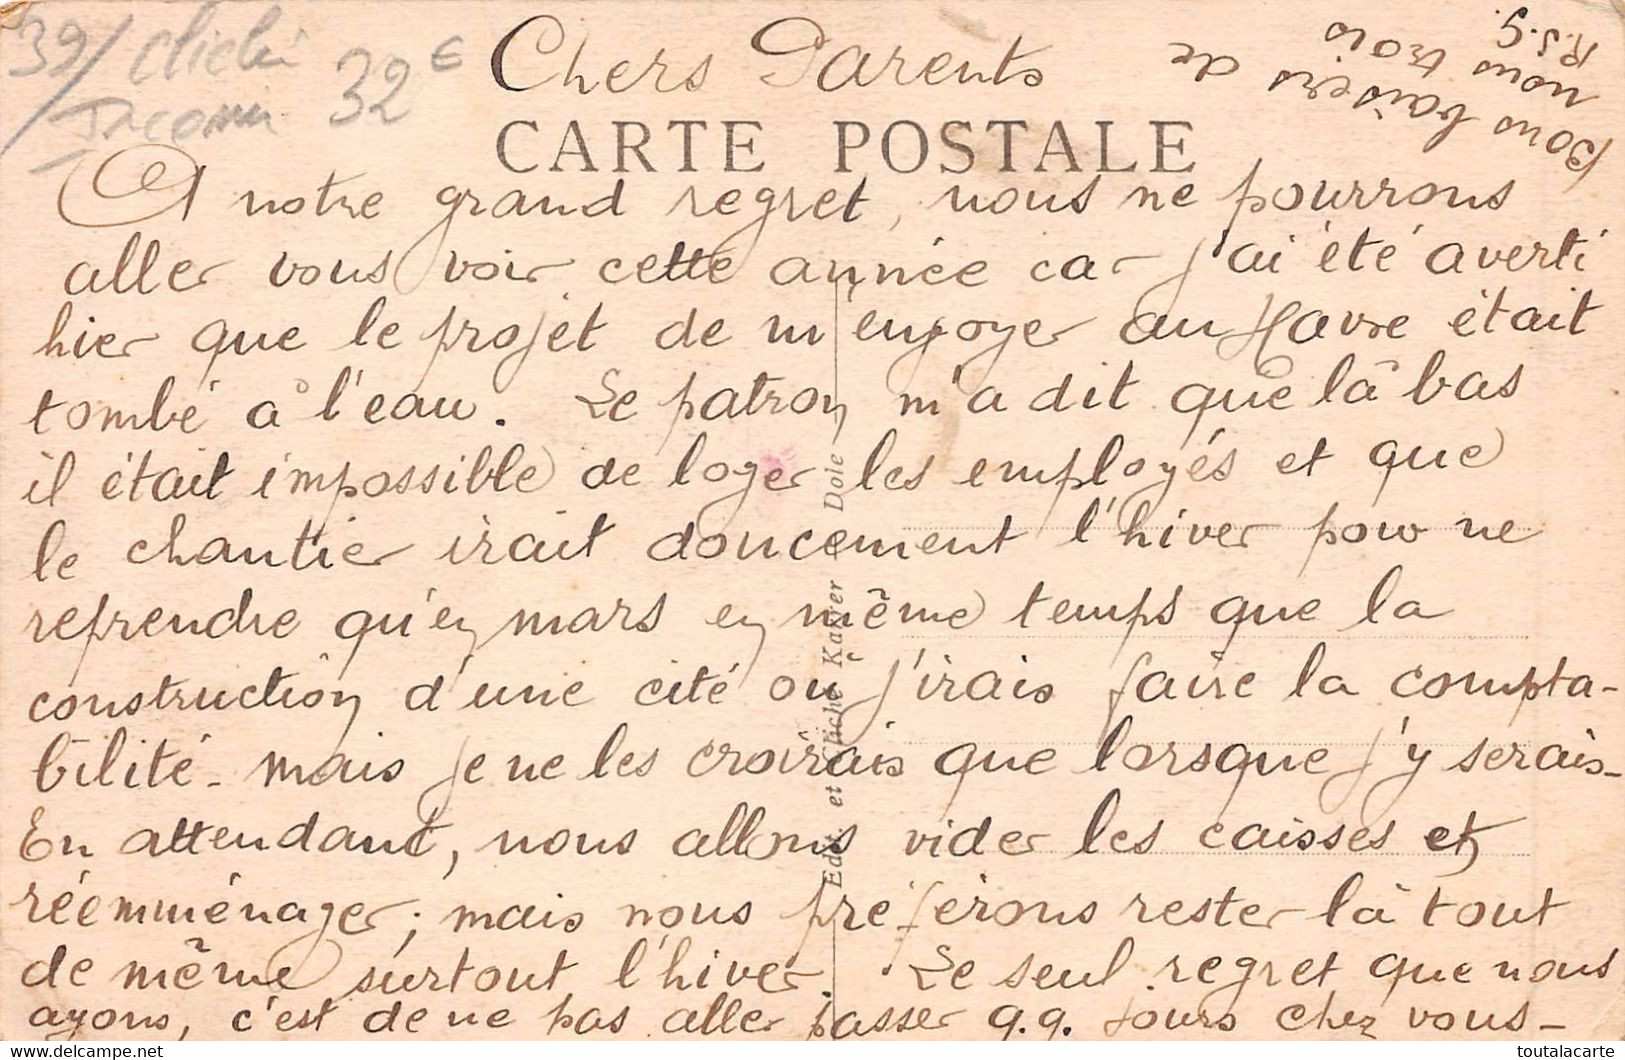 39/ cliché
Jacomin 32 €
Chers Parents
Bons baisers de
nous trois
R.S.G.
CARTE POSTALE
A notre grand regret, nous ne pourrons
aller vous voir cette année car j'ai été averti
hier que le projet de m'envoyer au Havre était
tombé à l'eau. Le patron m'a dit que là bas
il était impossible de loger les employés et que
le chantier irait doucement l'hiver pour ne
reprendre qu'en mars en même temps que la
construction d'une cité où j'irais faire la compta-
bilité - mais je ne les croirais que lorsque j'y serais -
En attendant, nous allons vider les caisses et
réemménager ; mais nous préférons rester là tout
de même surtout l'hiver. Le seul regret que nous
ayons, c'est de ne pas aller passer q.q. jours chez vous -
Edit. et Cliché Karrer — Dole
toutalacarte